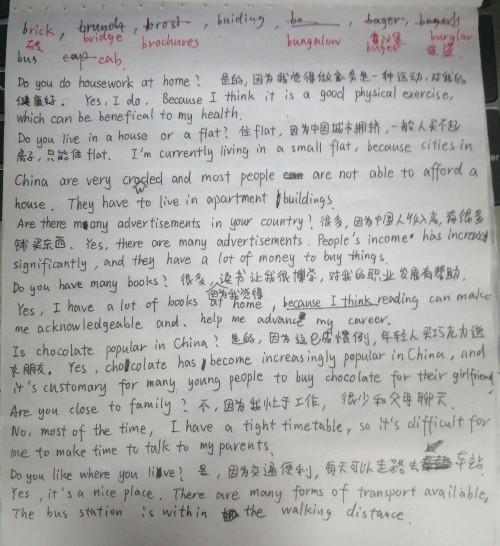 brick, brunch, brosi, buiding, ba, bager, bugerd
砖 bridge brochures bungalow 有汉堡 buger burglar 盗
bus cap cab.
Do you do housework at home? 是的, 因为我觉得做家务是一种运动, 对我的
健康好. Yes, I do. Because I think it is a good physical exercise,
which can be benefical to my health.
Do you live in a house or a flat? 住flat, 因为中国城市拥挤, 一般人买不起
房子, 只能住flat. I'm currently living in a small flat, because cities in
China are very croded w and most people are not able to afford a
house. They have to live in apartment buildings.
Are there many advertisements in your country? 很多, 因为中国人收入高, 有很多
钱买东西. Yes, there are many advertisements. People's income has increased
significantly, and they have a lot of money to buy things.
Do you have many books? 很多, 读书让我很博学, 对我的职业发展有帮助.
因为我觉得
Yes, I have a lot of books at home, because I think reading can make
me acknowledgeable and. help me advance my career.
Is chocolate popular in China? 是的, 因为这已成惯例, 年轻人买巧克力送
女朋友. Yes, chocolate has become increasingly popular in China, and
it's customary for many young people to buy chocolate for their girlfriend
Are you close to family? 不, 因为我忙于工作, 很少和父母聊天.
No, most of the time, I have a tight timetable, so it's difficult for
me to make time to talk to my parents.
Do you like where you live? 是, 因为交通便利, 每天可以走路去车站.
Yes, it's a nice place. There are many forms of transport available,
The bus station is within the walking distance.